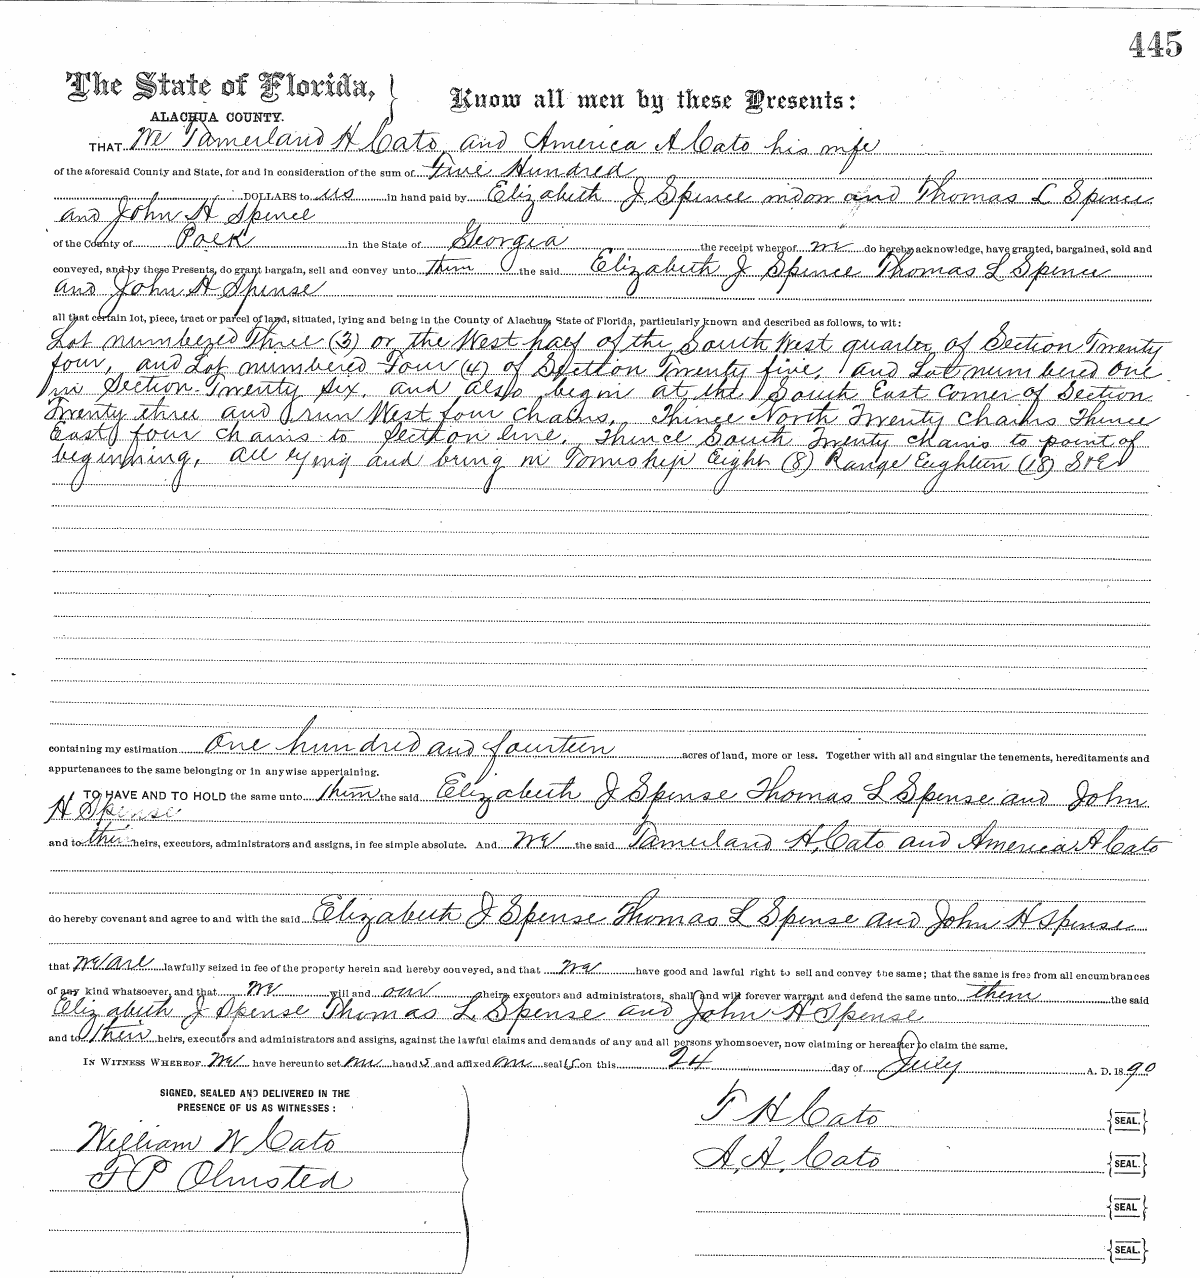 445
The State of Florida,
ALACHUA COUNTY.
Know all men by these Presents:
THAT We Tamerland H Cato and America A Cato his wife
of the aforesaid County and State, for and in consideration of the sum of Five Hundred
DOLLARS to us in hand paid by Elizabeth J Spence widow and Thomas L Spence
and John H Spence
of the County of Polk in the State of Georgia the receipt whereof we do hereby acknowledge, have granted, bargained, sold and
conveyed, and by these Presents, do grant bargain, sell and convey unto them the said Elizabeth J Spence Thomas L Spence
and John H Spense
all that certain lot, piece, tract or parcel of land, situated, lying and being in the County of Alachua, State of Florida, particularly known and described as follows, to wit:
Lot numbered Three (3) or the West half of the South West quarter of Section Twenty
four, and Lot numbered Four (4) of Section Twenty five, and Lot numbered one
in Section Twenty six, and also begin at the South East Corner of Section
Twenty three and run West four chains, Thince North Twenty chains Thince
East four chains to Section line. Thince South Twenty chains to point of
beginning, all lying and being in Township Eight (8) Range Eighteen (18) S&E
containing my estimation one hundred and fourteen acres of land, more or less. Together with all and singular the tenements, hereditaments and
appurtenances to the same belonging or in anywise appertaining.
TO HAVE AND TO HOLD the same unto them the said Elizabeth J Spense Thomas L Spense and John
H Spense
and to their heirs, executors, administrators and assigns, in fee simple absolute. And we the said Tamerland H, Cato and America A Cato
do hereby covenant and agree to and with the said Elizabeth J Spense Thomas L Spense and John H Spense
that we are lawfully seized in fee of the property herein and hereby conveyed, and that we have good and lawful right to sell and convey the same; that the same is free from all encumbrances
of any kind whatsoever, and that we will and our heirs, executors and administrators, shall and will forever warrant and defend the same unto them the said
Elizabeth J Spense Thomas L Spense and John H Spense
and to their heirs, executors and administrators and assigns, against the lawful claims and demands of any and all persons whomsoever, now claiming or hereafter to claim the same.
IN WITNESS WHEREOF We have hereunto set our hands and affixed our seals on this 24 day of July A. D. 1890
SIGNED, SEALED AND DELIVERED IN THE
PRESENCE OF US AS WITNESSES:
William W Cato
F P Olmsted
T H Cato {SEAL.}
A. A. Cato {SEAL.}
{SEAL}
{SEAL.}